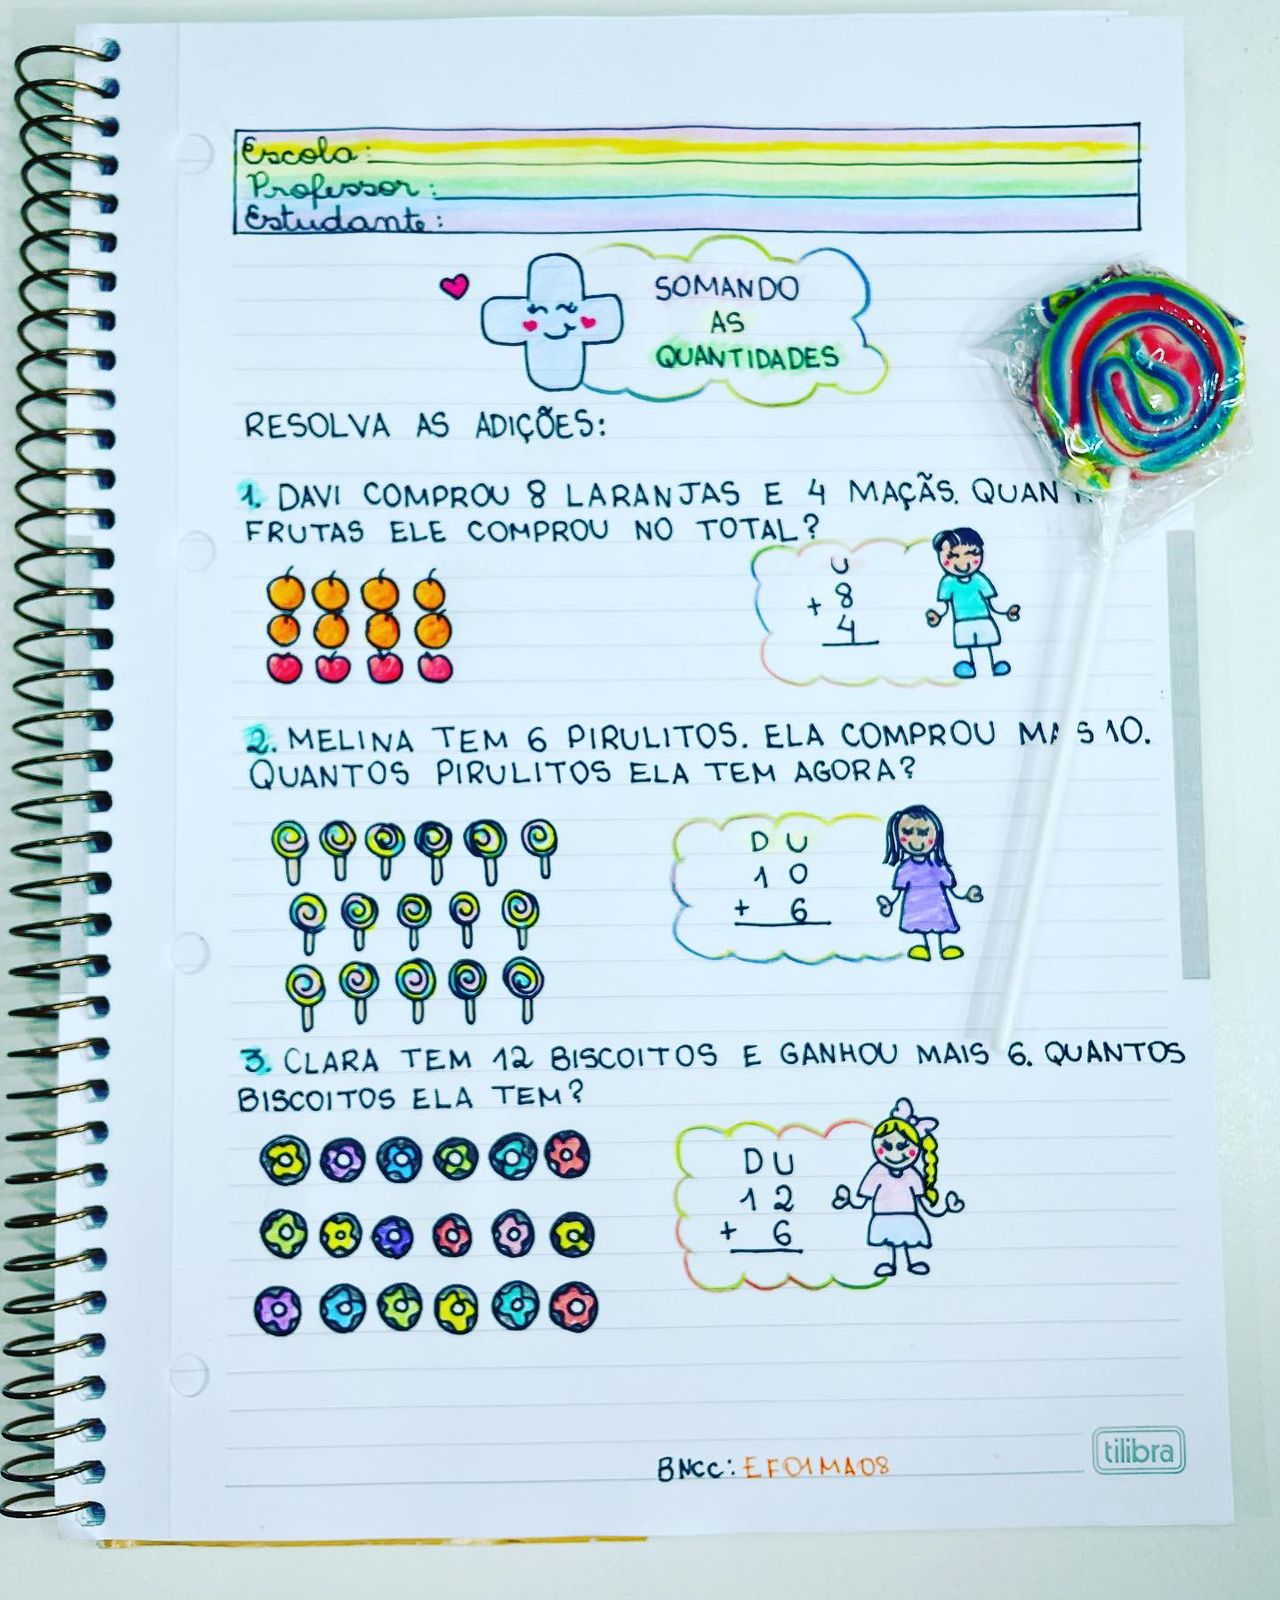 Escola:
Professor:
Estudante:
SOMANDO
AS
QUANTIDADES
RESOLVA AS ADIÇÕES:
1. DAVI COMPROU 8 LARANJAS E 4 MAÇÃS. QUAN
FRUTAS ELE COMPROU NO TOTAL?
U
+ 8
4
2. MELINA TEM 6 PIRULITOS. ELA COMPROU MAIS 10.
QUANTOS PIRULITOS ELA TEM AGORA?
D U
1 0
+ 6
3. CLARA TEM 12 BISCOITOS E GANHOU MAIS 6. QUANTOS
BISCOITOS ELA TEM?
D U
1 2
+ 6
BNCC: EF01MA08
tilibra